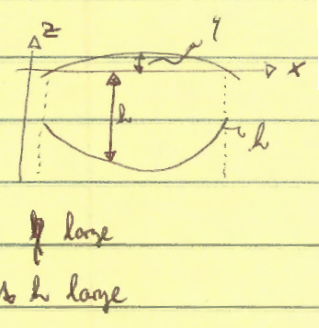 z
η
x
h
h
η large
h large